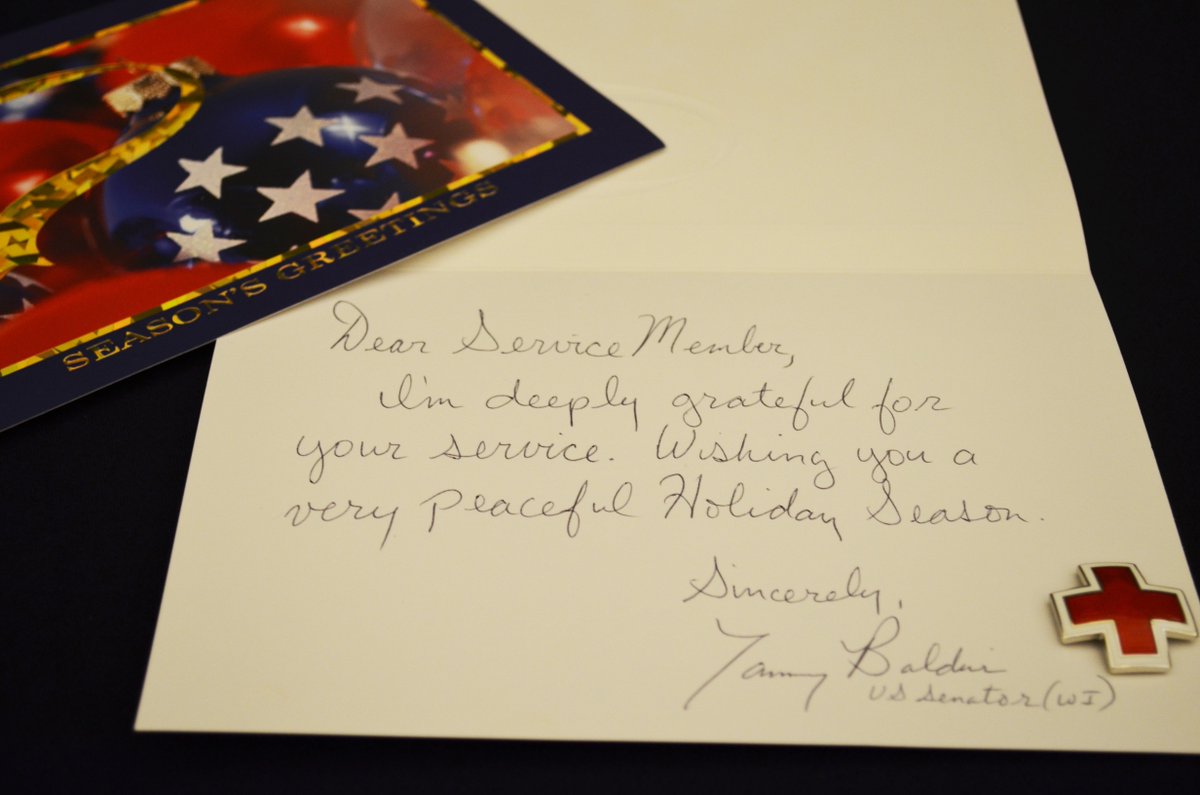 SEASON'S GREETINGS
Dear Service Member,
I'm deeply grateful for
your service. Wishing you a
very peaceful Holiday Season.
Sincerely,
Tammy Baldwin
US Senator (WI)